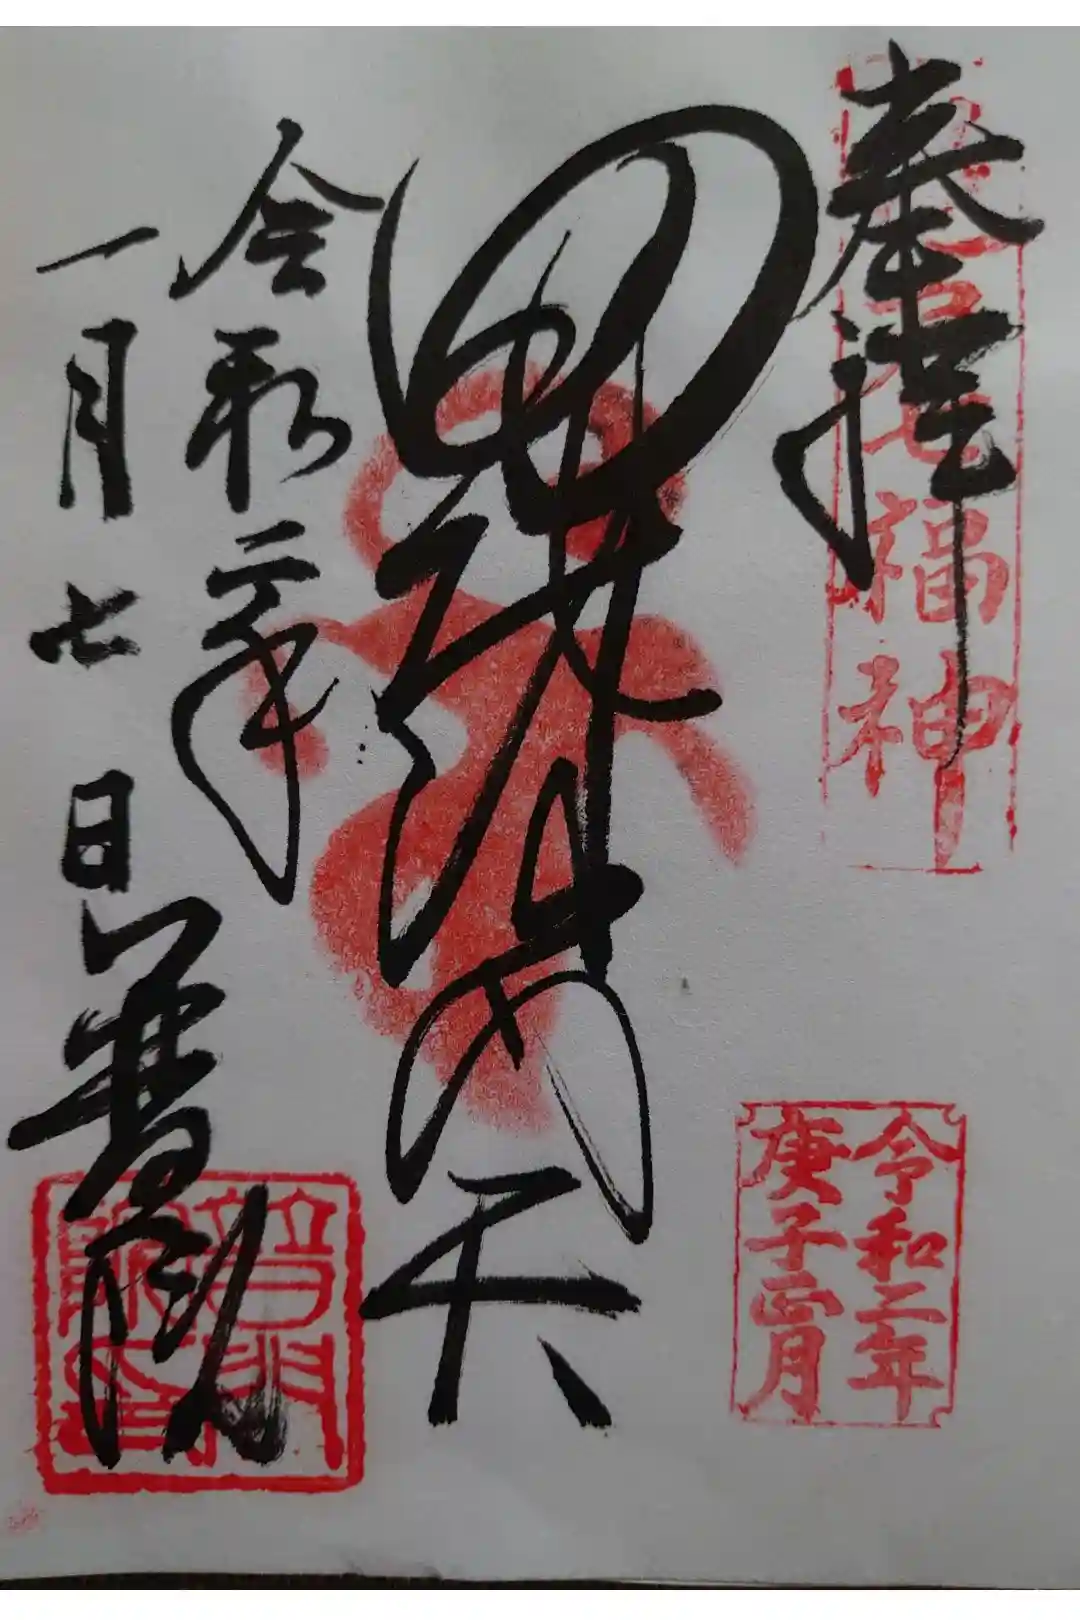 奉拝
七福神
毘沙門天
令和二年
一月七日
普門院
令和二年
庚子正月